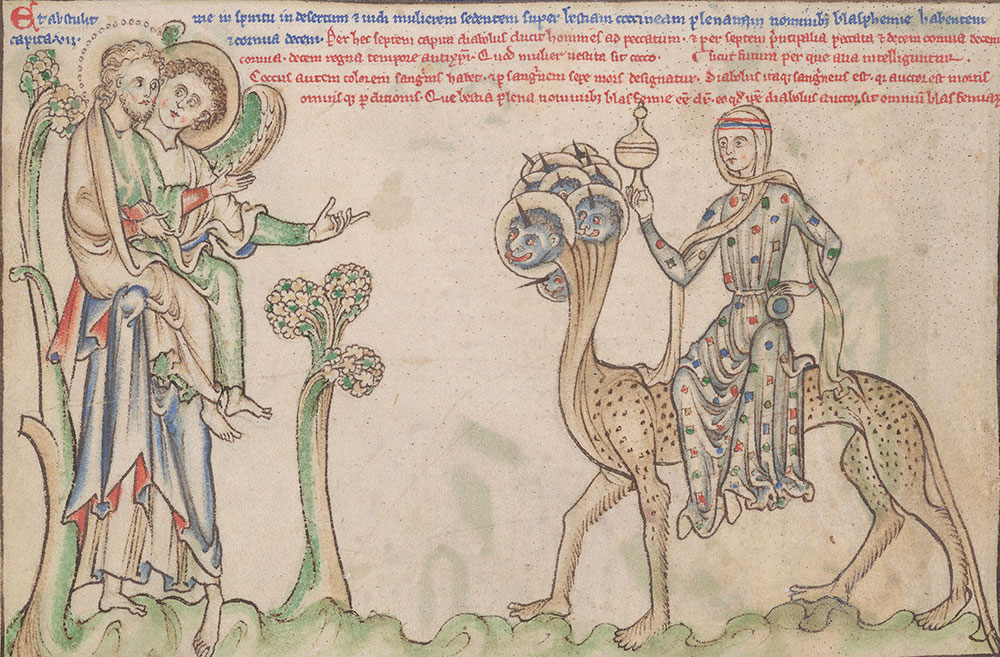 Et abstulit me in spiritu in desertum & uidi mulierem sedentem super bestiam coccineam plenam nominib; blasphemie habentem
capita .vii. & cornua decem. Per hec septem capita diabolus ducit homines ad peccatum. & per septem principalia peccata & decem cornua decem
cornua. decem regna tempore antixpi. Quod mulier uestita sit cocco.
Coccus autem colorem sanguinis habet. per sanguinem sepe mors designatur. Diabolus itaq; sanguineus est. qi auctor est mortis
omnisq; perditionis. Que bestia plena nominib; blasfemie eo qd ipse diabolus auctor sit omnium blasfemiarum